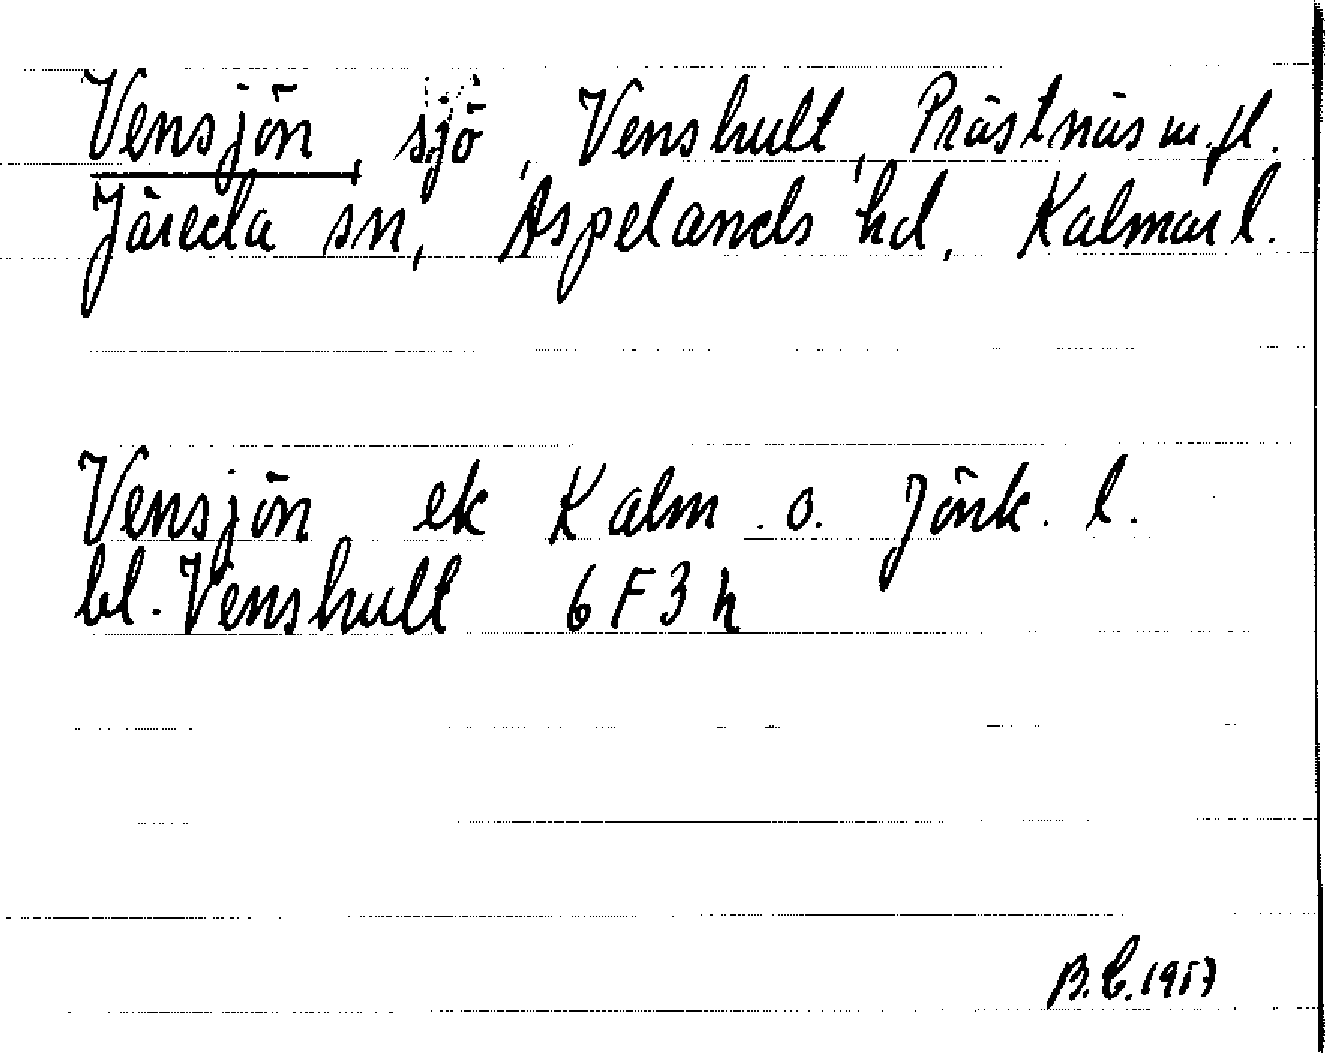 Vensjön, sjö, Venshult, Prästnäs m.fl.
Järeda sn, Aspelands hd, Kalmar l.
Vensjön ek Kalm. o. Jönk. l.
bl. Venshult 6F3h